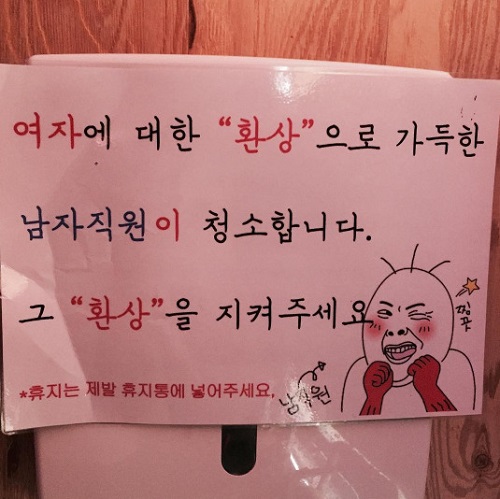 여자에 대한 “환상”으로 가득한
남자직원이 청소합니다.
그 “환상”을 지켜주세요
*휴지는 제발 휴지통에 넣어주세요,
남직원
찡끗